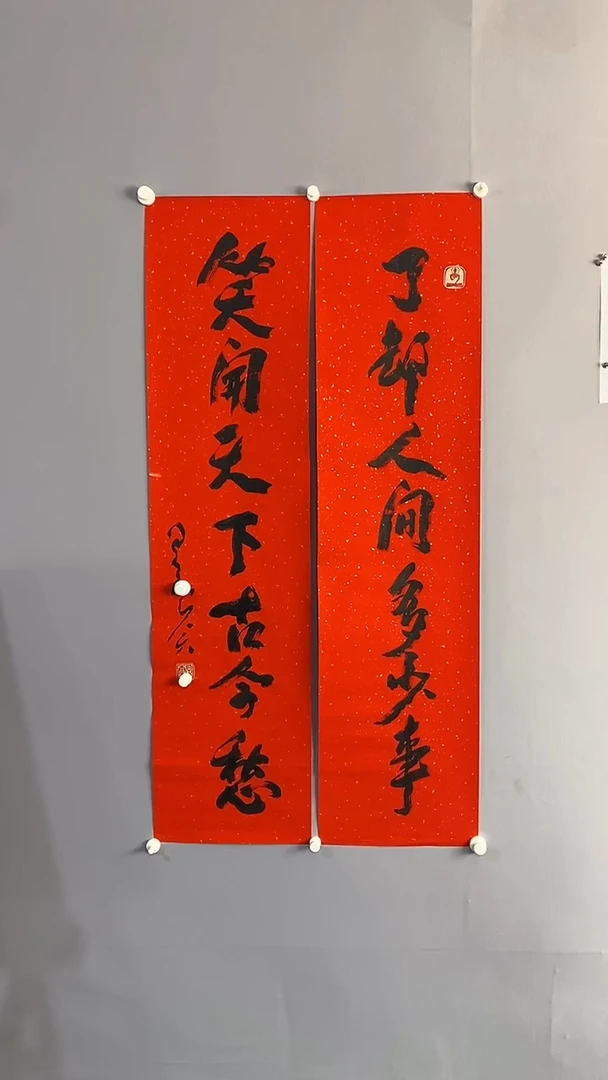 了却人间多少事
笑开天下古今愁